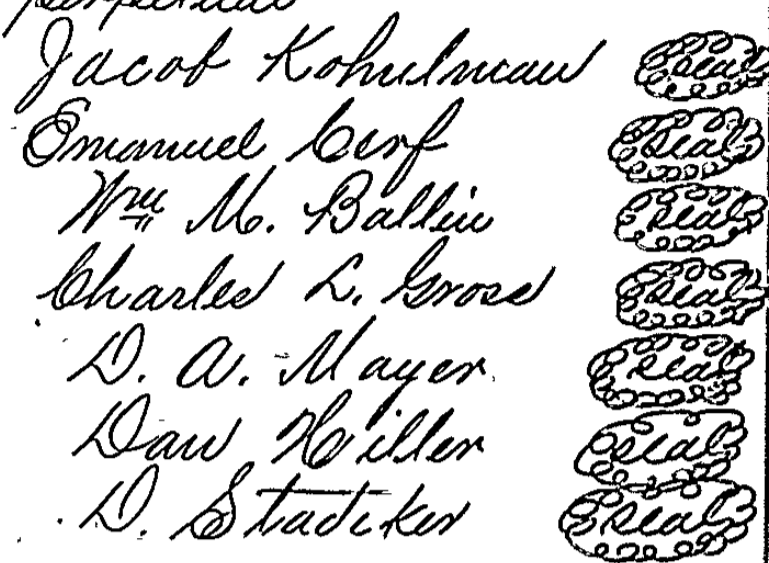 Jacob Kohulman Seal
Emanuel Cerf Seal
Wm M. Ballin Seal
Charles L. Gross Seal
D. A. Mayer. Seal
Dan Hiller Seal
D. Stadiker Seal